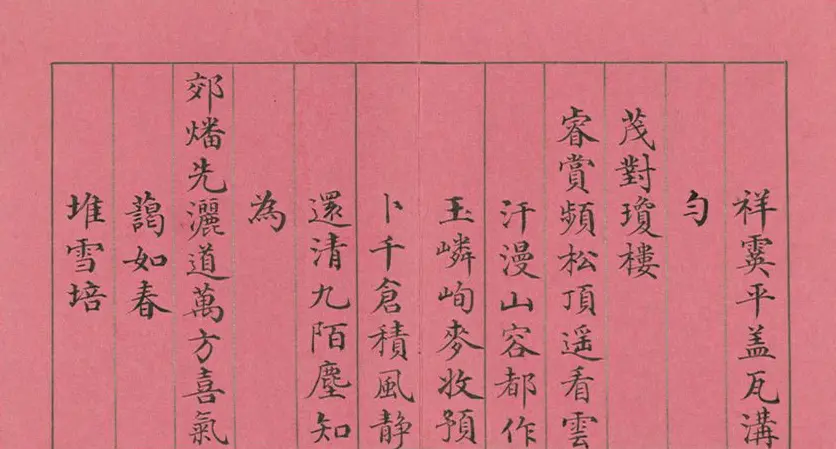 祥霙平盖瓦溝
勻
茂對瓊樓
睿賞頻松頂遥看雲
汗漫山容都作
玉嶙峋麥收預
卜千倉積風静
還清九陌塵知
為
郊燔先灑道萬方喜氣
藹如春
堆雪培